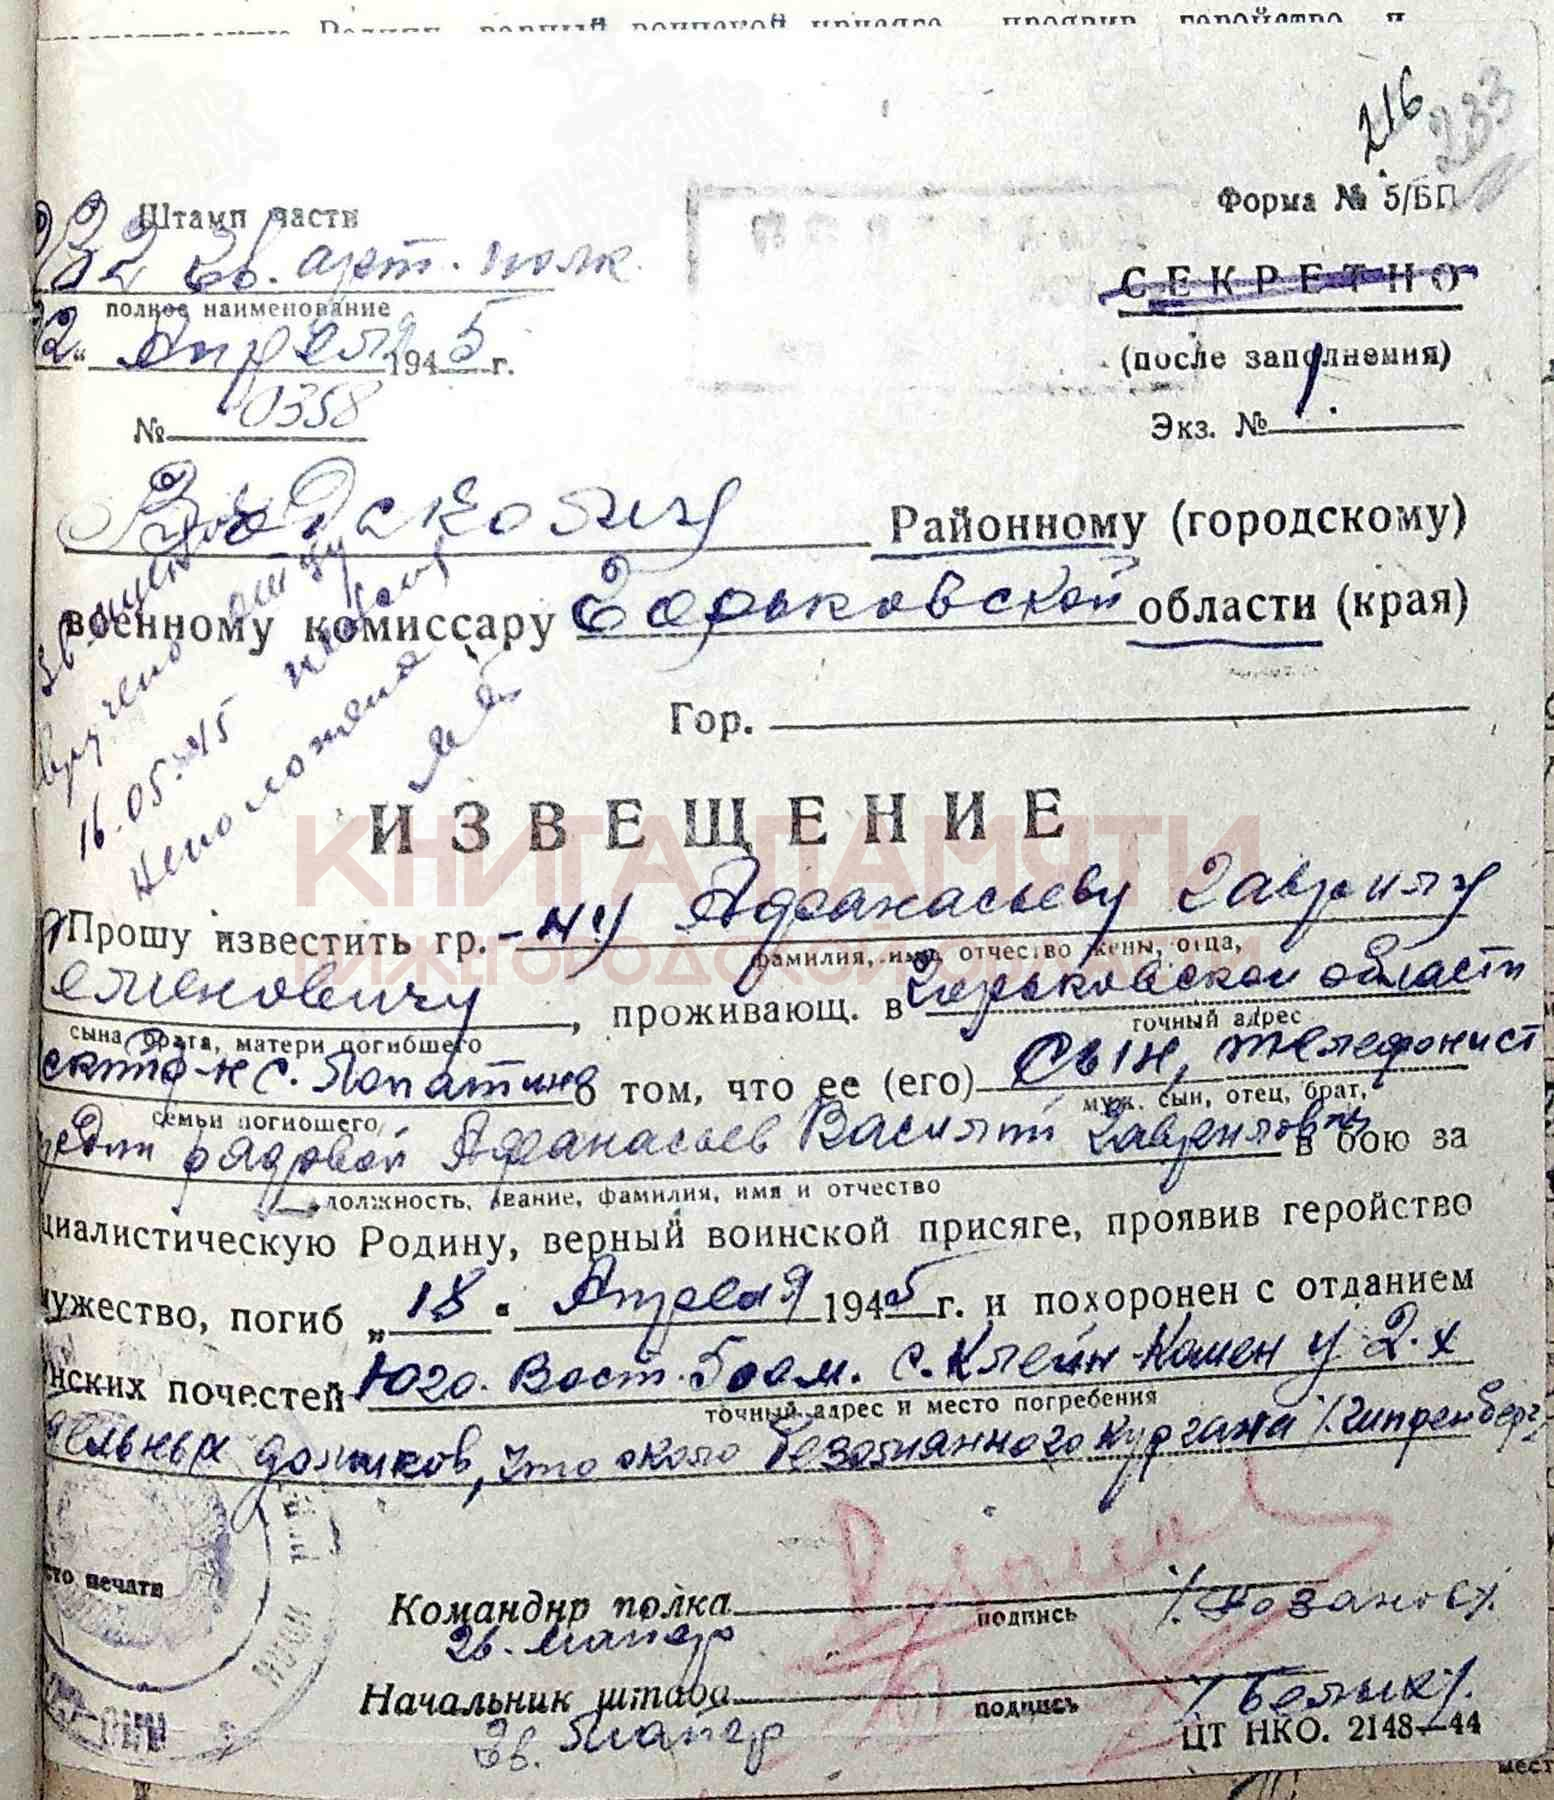 216
233
Штамп части
Форма № 5/БП
232 гв. арт. полк.
СЕКРЕТНО
полное наименование
22 " Апреля 1945 г.
(после заполнения)
№ 0358
Экз. № 1.
Районному (городскому)
военному комиссару Горьковской области (края)
Гор.
вручено
16.05.45
ИЗВЕЩЕНИЕ
КНИГА ПАМЯТИ
НИЖЕГОРОДСКОЙ ОБЛАСТИ
Прошу известить гр.-ну Афанасьеву Гаврилу
фамилия, имя, отчество жены, отца,
еменовичу, проживающ. в Горьковской области
сына, брата, матери погибшего
точный адрес
ский р-н с. Лопатино в том, что ее (его) Сын, телефонист
семьи погибшего
муж, сын, отец, брат,
рядовой Афанасьев Василий Гаврилович в бою за
должность, звание, фамилия, имя и отчество
циалистическую Родину, верный воинской присяге, проявив геройство
мужество, погиб „18" Апреля 1945 г. и похоронен с отданием
нских почестей Юго. Вост. 500 м. с. Клейн-Камен у 2-х
точный адрес и место погребения
дельных домиков, что около безымянного кургана
сто печати
Командир полка
подпись
гв. майор
/Козанов/.
Начальник штаба
подпись
/Белых/.
Гв. Майор
ЦТ НКО. 2148—44